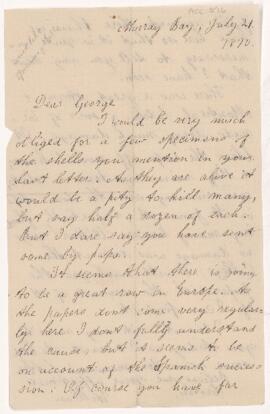 Murray Bay, July 21.
1870.
Dear George
I would be very much
obliged for a few specimens of
the shells you mention in your
last letter. As they are alive it
would be a pity to kill many,
but say half a dozen of each.
But I dare say you have sent
some by papa.
It seems that there is going
to be a great row in Europe. As
the papers dont come very regular-
ly here I don't fully understand
the cause, but it seems to be
on account of the Spanish succes-
sion. Of course you have far